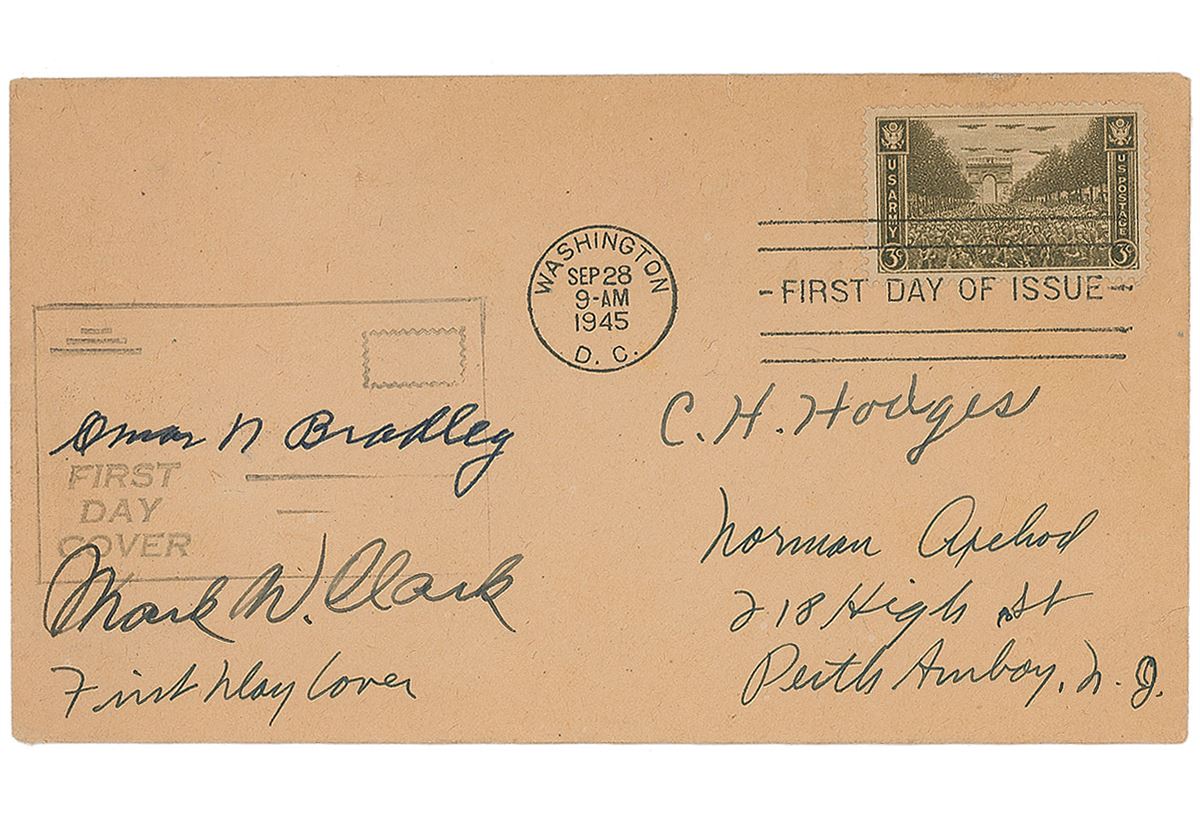 U S ARMY
US POSTAGE
3¢ 3¢
WASHINGTON
SEP 28
9-AM
1945
D. C.
-FIRST DAY OF ISSUE-
C. H. Hodges
Omar N Bradley
FIRST
DAY
COVER
Mark W. Clark
First Day Cover
Norman Axelrod
218 High St
Perth Amboy, N. J.